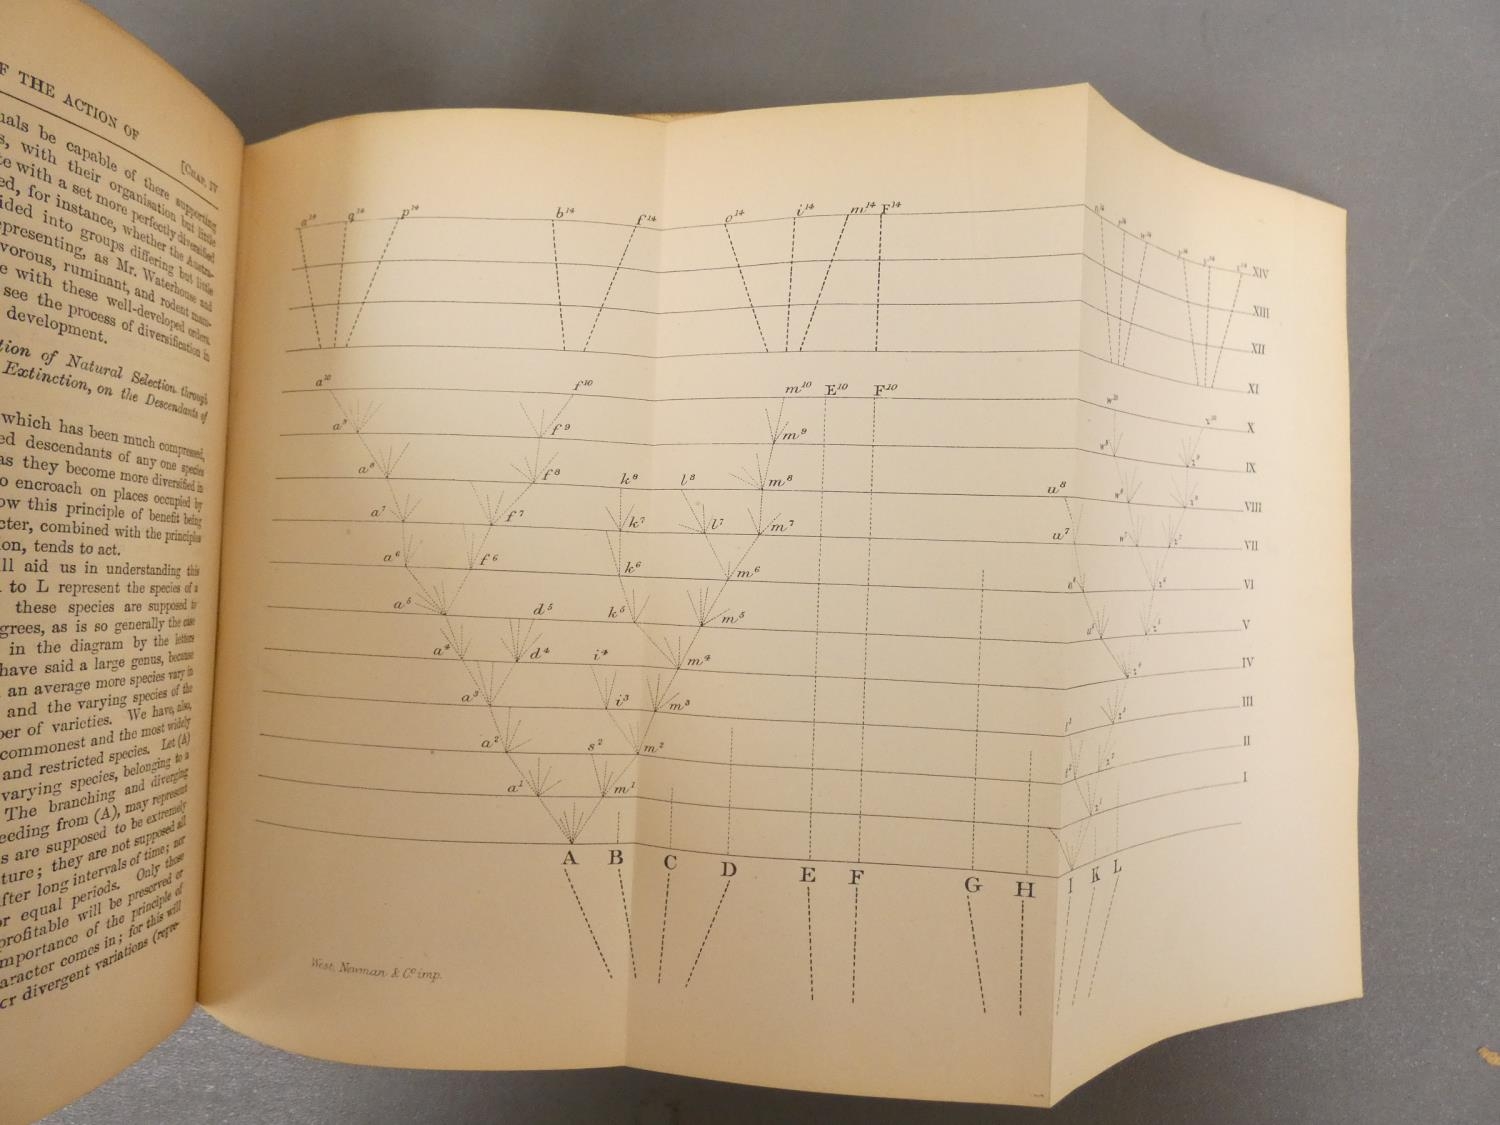 F THE ACTION OF
[CHAP. IV
uals be capable of there supporting
s, with their organisation but little
te with a set more perfectly diversified
ed, for instance, whether the Austra-
ided into groups differing but little
presenting, as Mr. Waterhouse and
vorous, ruminant, and rodent mam-
e with these well-developed orders.
see the process of diversification in
development.
tion of Natural Selection through
Extinction, on the Descendants of
which has been much compressed,
ed descendants of any one species
as they become more diversified in
o encroach on places occupied by
ow this principle of benefit being
cter, combined with the principles
ion, tends to act.
ll aid us in understanding this
to L represent the species of a
these species are supposed to
grees, as is so generally the case
in the diagram by the letters
have said a large genus, because
an average more species vary in
and the varying species of the
ber of varieties. We have, also,
commonest and the most widely
and restricted species. Let (A)
varying species, belonging to a
The branching and diverging
eeding from (A), may represent
s are supposed to be extremely
ture; they are not supposed all
fter long intervals of time; nor
or equal periods. Only those
profitable will be preserved or
mportance of the principle of
aracter comes in; for this will
or divergent variations (repre-
a¹⁴ q¹⁴ p¹⁴ b¹⁴ f¹⁴ o¹⁴ i¹⁴ m¹⁴ F¹⁴ n¹⁴ r¹⁴ w¹⁴ y¹⁴ v¹⁴ z¹⁴ XIV
XIII
XII
XI
a¹⁰ f¹⁰ m¹⁰ E¹⁰ F¹⁰ w¹⁰ z¹⁰ X
a⁹ f⁹ m⁹ w⁹ z⁹ IX
a⁸ f⁸ k⁸ l⁸ m⁸ u⁸ w⁸ z⁸ VIII
a⁷ f⁷ k⁷ l⁷ m⁷ u⁷ w⁷ z⁷ VII
a⁶ f⁶ k⁶ m⁶ u⁶ z⁶ VI
a⁵ d⁵ k⁵ m⁵ u⁵ z⁵ V
a⁴ d⁴ i⁴ m⁴ z⁴ IV
a³ i³ m³ t³ z³ III
a² s² m² t² z² II
a¹ m¹ z¹ I
A B C D E F G H I K L
West, Newman & Co imp.